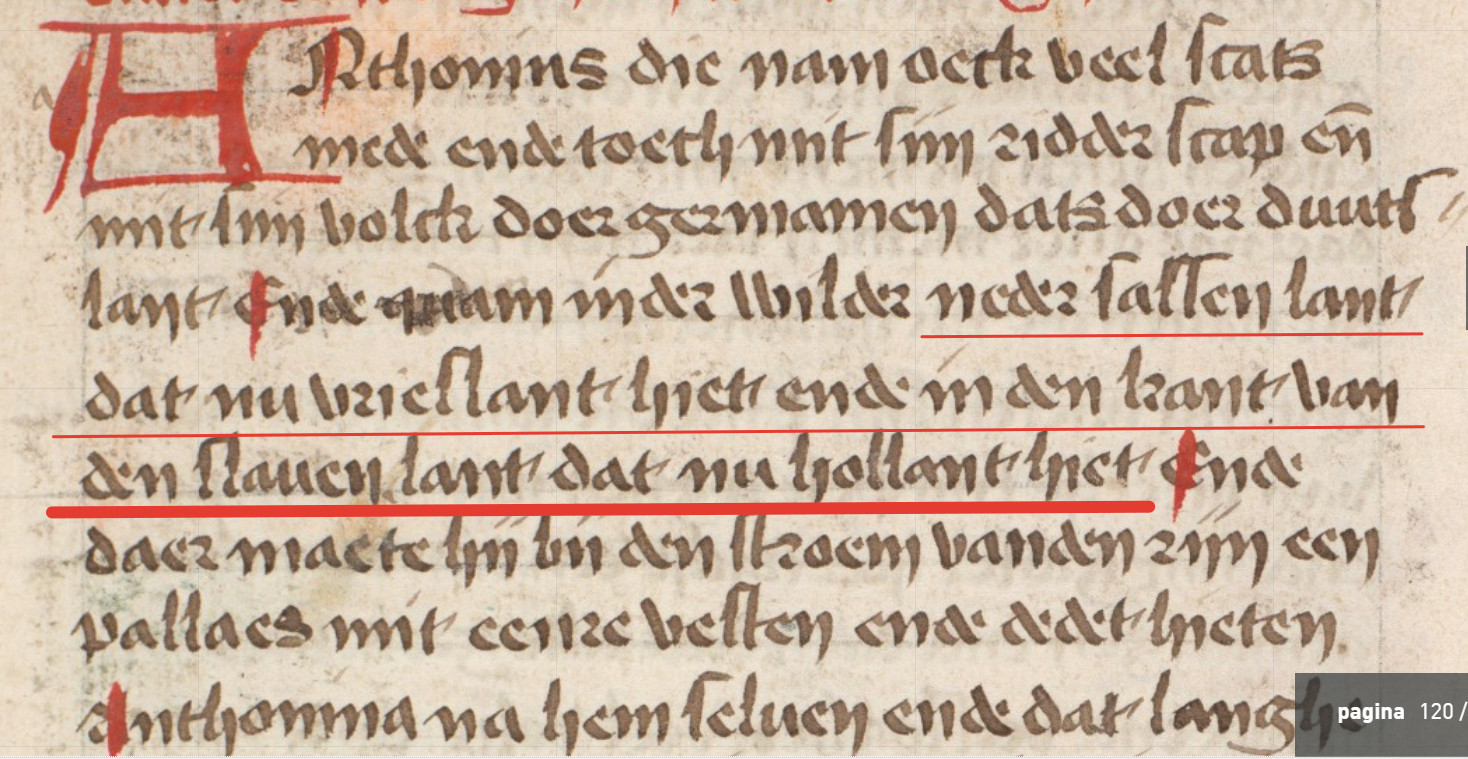 ANthonius die nam oeck veel scats
mede ende toech mit sijn ridder scap en̄
mit sijn volck doer germanien dats doer duuts
lant Ende quam in der wilder neder sassen lant
dat nu vrieslant hiet ende in den kant van
den slauen lant dat nu hollant hiet Ende
daer maecte hij bij den stroem vanden rijn een
pallaes mit eenre vesten ende dedet hieten
Anthonina na hem seluen ende dat langhe
pagina 120 /